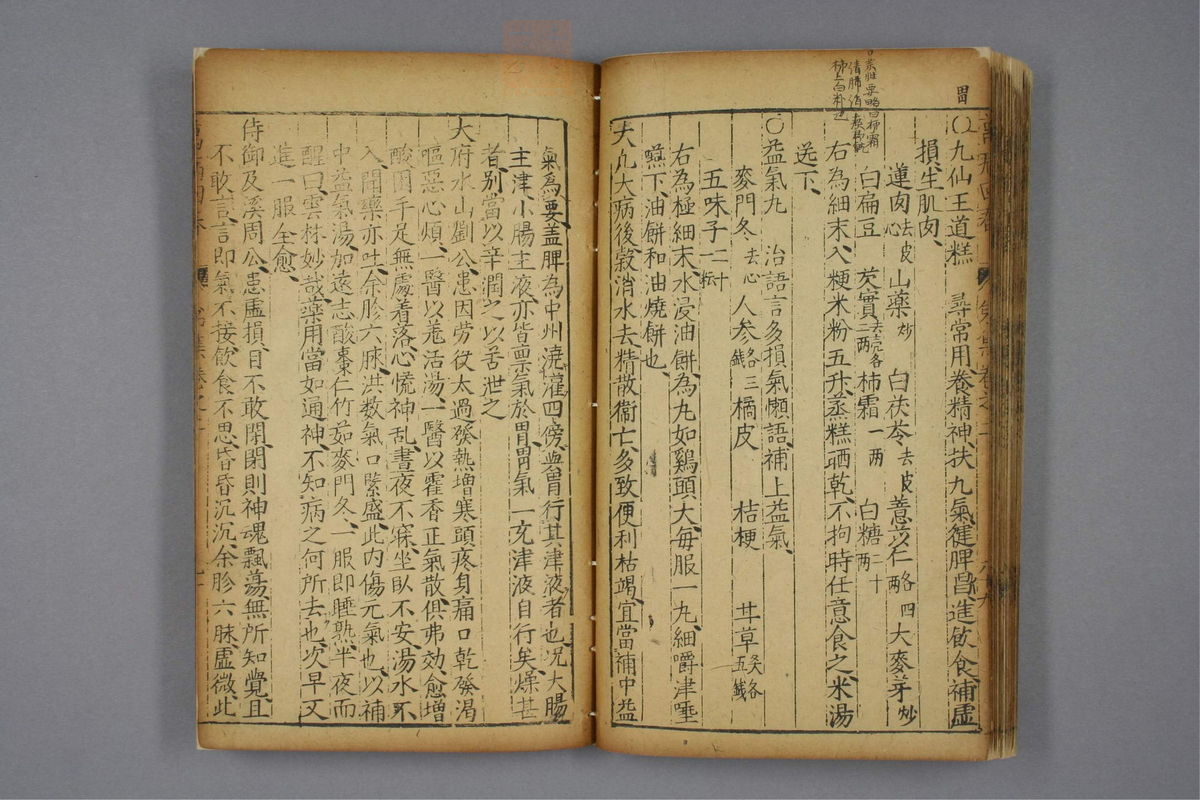 胃
○九仙王道糕 尋常用養精神扶九氣健脾胃進飲食補虛
損生肌肉
蓮肉去皮心 山藥炒 白茯苓去皮 薏苡仁各四兩 大麥芽炒
白扁豆 芡實去殼各二兩 柿霜一兩 白糖二十兩
右為細末入粳米粉五升蒸糕晒乾不拘時任意食之米湯
送下
○益氣丸 治語言多損氣懶語補上益氣
麥門冬去心 人參各三錢 橘皮 桔梗 甘草炙各五錢
五味子二十粒
右為極細末水浸油餅為丸如鷄頭大每服一丸細嚼津唾
嚥下油餅和油燒餅也
大凡大病後穀消水去精散衞亡多致便利枯竭宜當補中益
氣為要盖脾為中州澆灌四傍與胃行其津液者也况大腸
主津小腸主液亦皆禀氣於胃胃氣一充津液自行矣燥甚
者別當以辛潤之以苦泄之
大府水山劉公患因勞役太過發熱增寒頭疼身痛口乾發渴
嘔惡心煩一醫以羗活湯一醫以霍香正氣散俱弗効愈增
酸困手足無處着落心慌神乱晝夜不寐坐臥不安湯水不
入聞藥亦吐余胗六脉洪数氣口緊盛此内傷元氣也以補
中益氣湯加遠志酸棗仁竹茹麥門冬一服即睡熟半夜而
醒曰雲林妙哉藥用當如通神不知病之何所去也次早又
進一服全愈
侍御及溪周公患虛損目不敢閉閉則神魂飄蕩無所知覺且
不敢言言即氣不接飲食不思昏昏沉沉余胗六脉虛微此